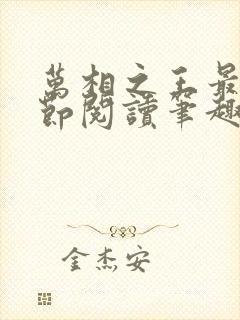 萬相之王最
節閱讀筆趣
金杰安